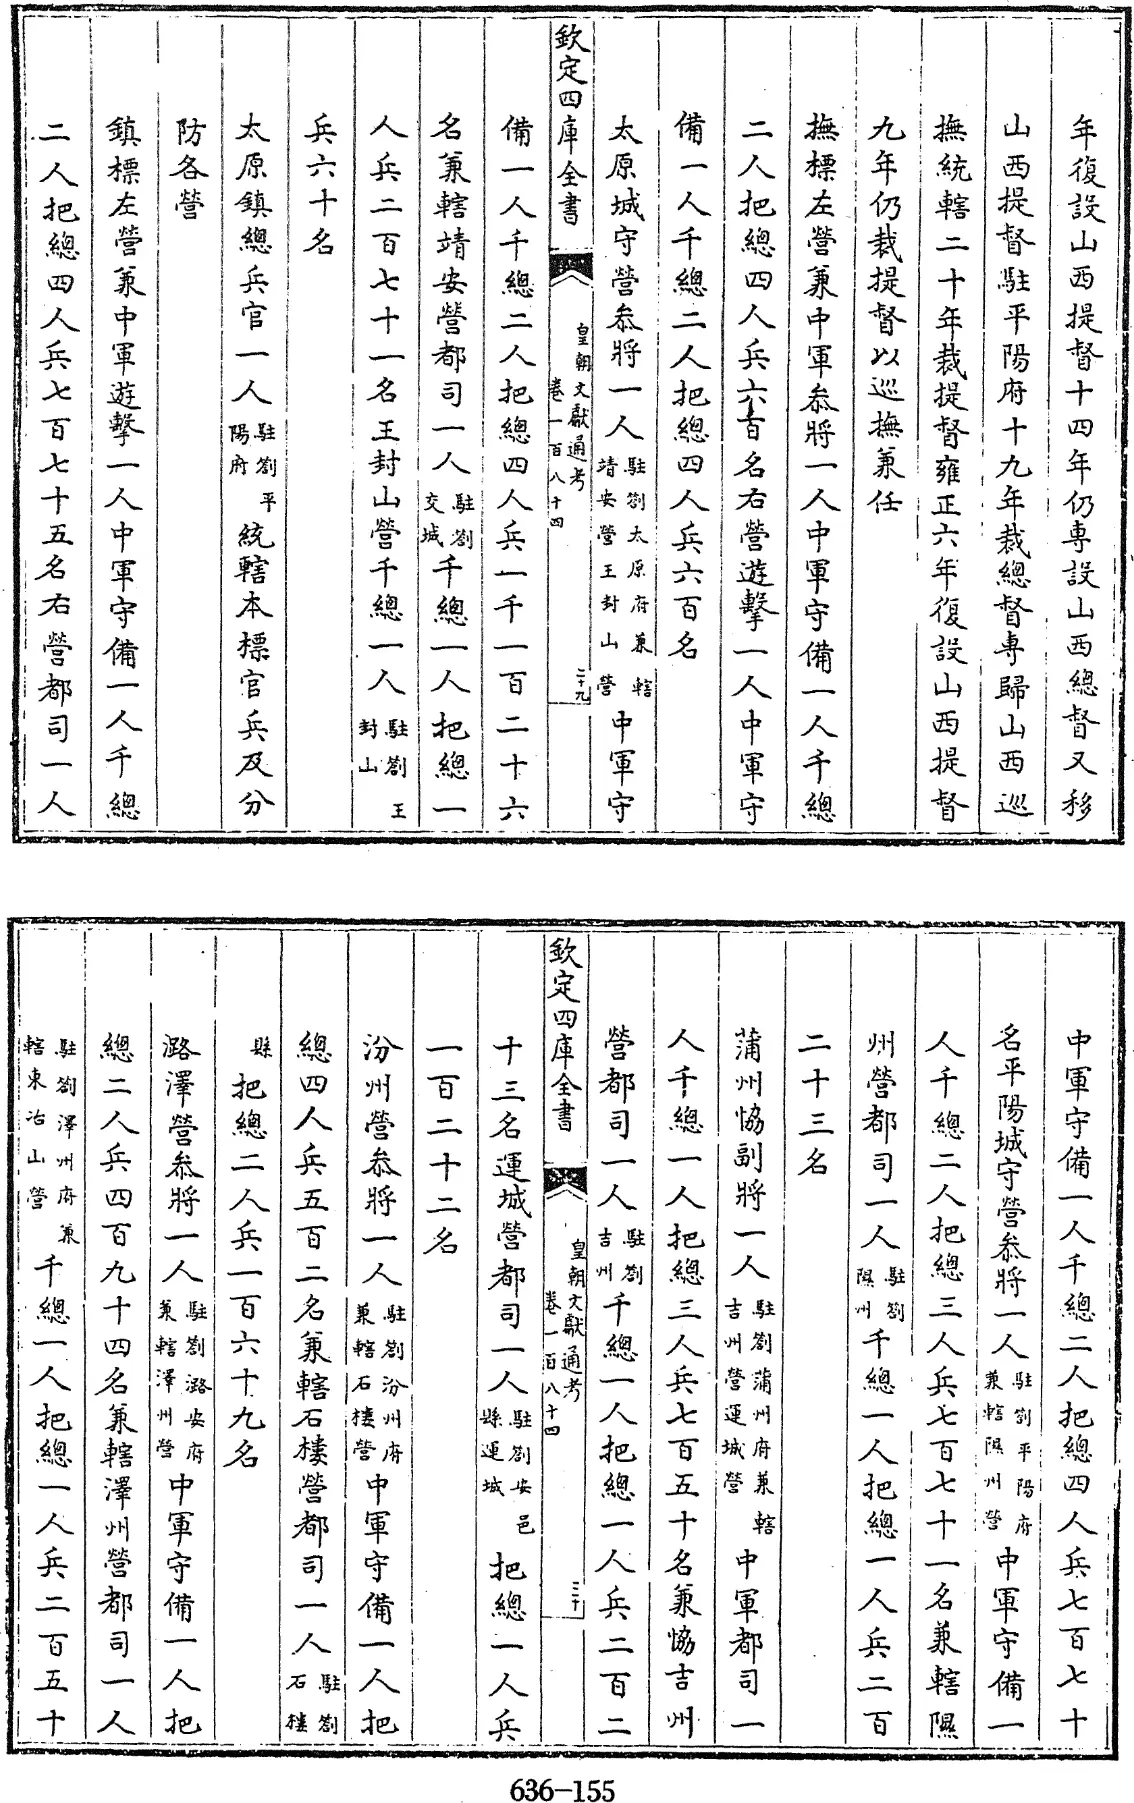 年復設山西提督十四年仍專設山西總督又移
山西提督駐平陽府十九年裁總督專歸山西巡
撫統轄二十年裁提督雍正六年復設山西提督
九年仍裁提督以巡撫兼任
撫標左營兼中軍叅將一人中軍守備一人千總
二人把總四人兵六百名右營遊擊一人中軍守
備一人千總二人把總四人兵六百名
太原城守營叅將一人駐劄太原府兼轄靖安營王封山營中軍守
欽定四庫全書
皇朝文獻通考
卷一百八十四
二十九
備一人千總二人把總四人兵一千一百二十六
名兼轄靖安營都司一人駐劄交城千總一人把總一
人兵二百七十一名王封山營千總一人駐劄王封山
兵六十名
太原鎮總兵官一人駐劄平陽府統轄本標官兵及分
防各營
鎮標左營兼中軍遊擊一人中軍守備一人千總
二人把總四人兵七百七十五名右營都司一人
中軍守備一人千總二人把總四人兵七百七十
名平陽城守營叅將一人駐劄平陽府兼轄隰州營中軍守備一
人千總二人把總三人兵七百七十一名兼轄隰
州營都司一人駐劄隰州千總一人把總一人兵二百
二十三名
蒲州協副將一人駐劄蒲州府兼轄吉州營運城營中軍都司一
人千總一人把總三人兵七百五十名兼協吉州
營都司一人駐劄吉州千總一人把總一人兵二百二
欽定四庫全書
皇朝文獻通考
卷一百八十四
三十
十三名運城營都司一人駐劄安邑縣運城把總一人兵
一百二十二名
汾州營叅將一人駐劄汾州府兼轄石樓營中軍守備一人把
總四人兵五百二名兼轄石樓營都司一人駐劄石樓
縣把總二人兵一百六十九名
潞澤營叅將一人駐劄潞安府兼轄澤州營中軍守備一人把
總二人兵四百九十四名兼轄澤州營都司一人
駐劄澤州府兼轄東冶山營千總一人把總一人兵二百五十
636-155